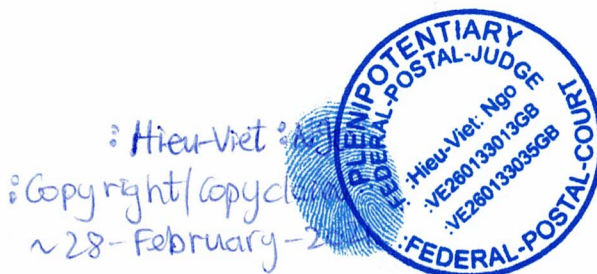 : Hieu-Viet :
: Copyright/copy
~28-February-
PLENIPOTENTIARY
FEDERAL-POSTAL-JUDGE
:Hieu-Viet: Ngo
:VE260133013GB
:VE260133035GB
:FEDERAL-POSTAL-COURT